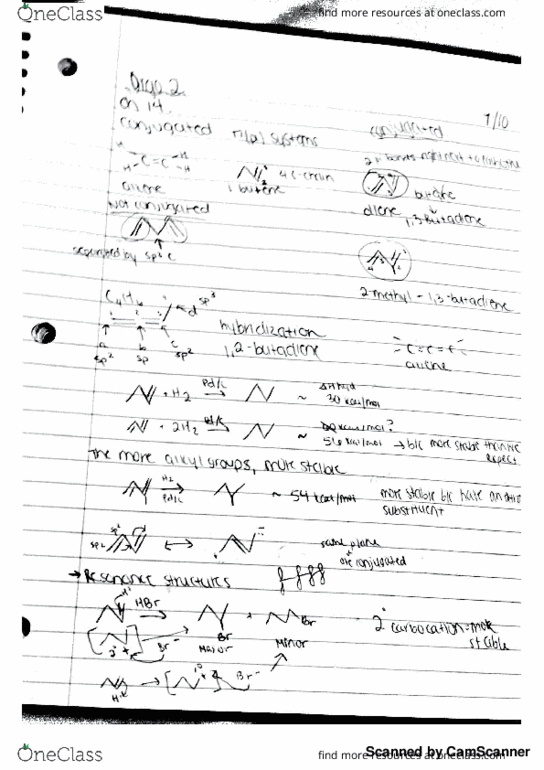 OneClass
find more resources at oneclass.com
Orgo 2
1/10
Ch 14.
conjugated π(pi) systems
conjugated
H H
C=C
H H
4 C-chain
1 butene
diene 1,3-butadiene
Not conjugated
separated by sp3 C
2-methyl-1,3-butadiene
C4H6
sp3
d
a b c
sp2 sp sp2
hybridization
1,2-butadiene
C=C=C
allene
+ H2 Pd/C ~ 30 kcal/mol
+ 2H2 Pd/C ~ kcal/mol?
kcal/mol → b/c more stable than we expect
The more alkyl groups, more stable
H2
Pd/C ~ 54 kcal/mol more stable b/c have another
substituent
sp2
sp2
same plane
conjugated
→ Resonance structures
HBr
+ Br
Br
Major Minor
2° carbocation = more
stable
2° + Br-
1° Br-
OneClass
find more resources at oneclass.com
Scanned by CamScanner